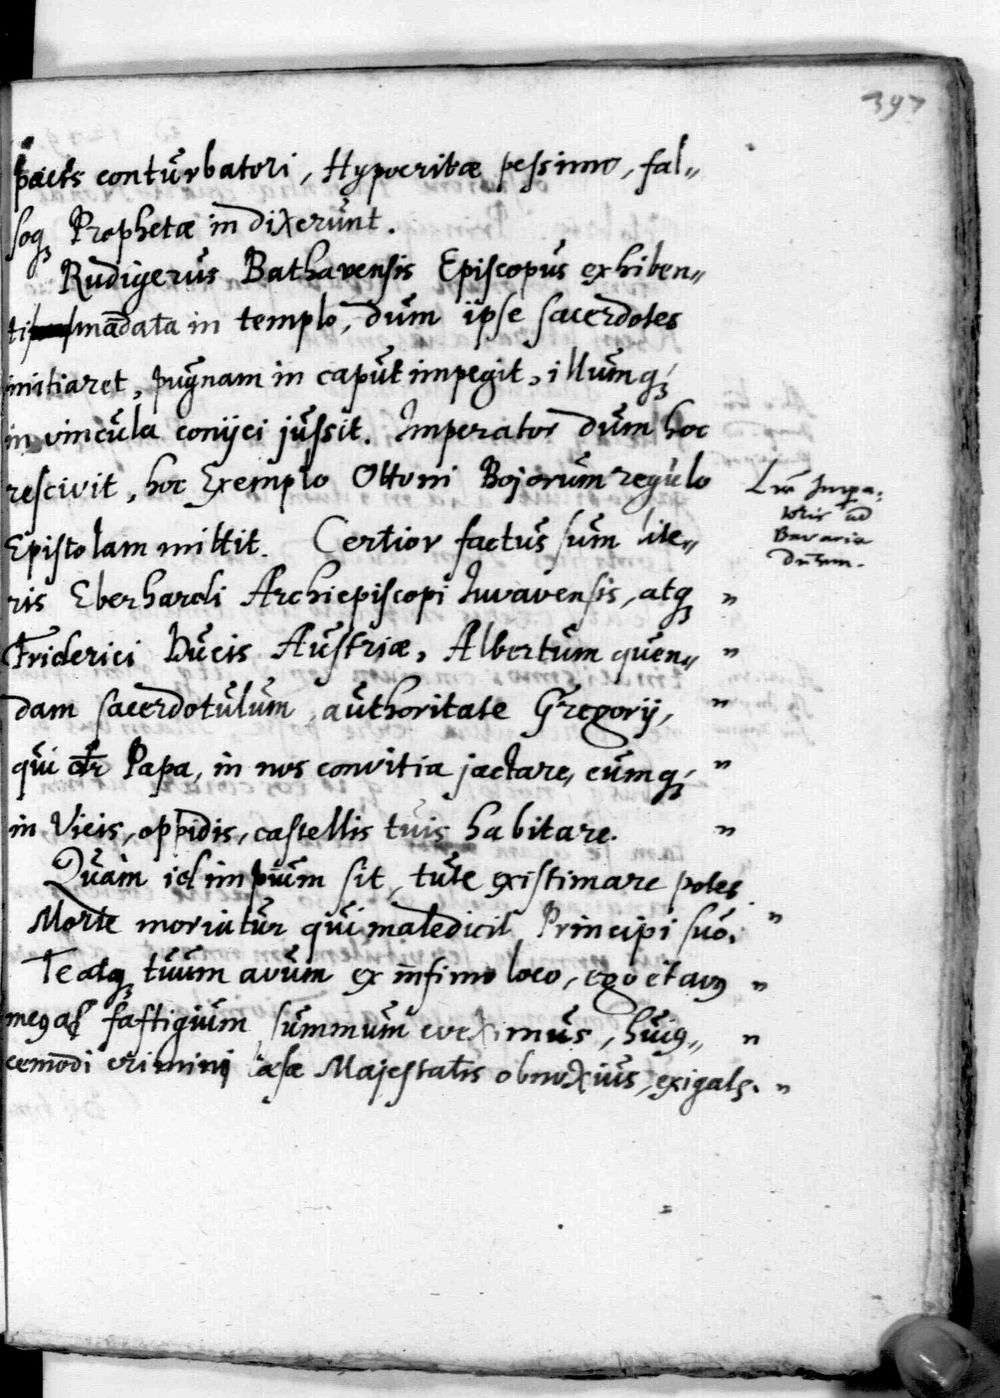 397
pacis conturbatori, Hypocritæ pessimo, fal„
soq; Prophetæ indixerunt.
Rudigerus Bathavensis Episcopus exhiben„
ti mādata in templo, dum ipse sacerdotes
initiaret, pugnam in caput impegit, illumq;
in vincula conijci jussit. Imperator dum hoc
rescivit, hoc Exemplo Ottoni Bojorum regulo
Epistolam mittit. Certior factus sum lite„
ris Eberhardi Archiepiscopi Iuvavensis, atq; "
Friderici Ducis Austriæ, Albertum quen„ "
dam sacerdotulum, authoritate Gregorij, "
qui Papa, in nos convitia jactare, eumq; "
in Vicis, oppidis, castellis tuis habitare. "
Quam id impium sit, tute existimare potes
Morte moriatur qui maledicit Principi suo. "
Te atq; tuum avum ex infimo loco, ego et av9 "
me9 ad fastigium summum eveximus, huig„ "
cemodi crimini læsæ Majestatis obnoxius, exigats. "
Lræ Impa:
toris ad
Bavariæ
Ducem.